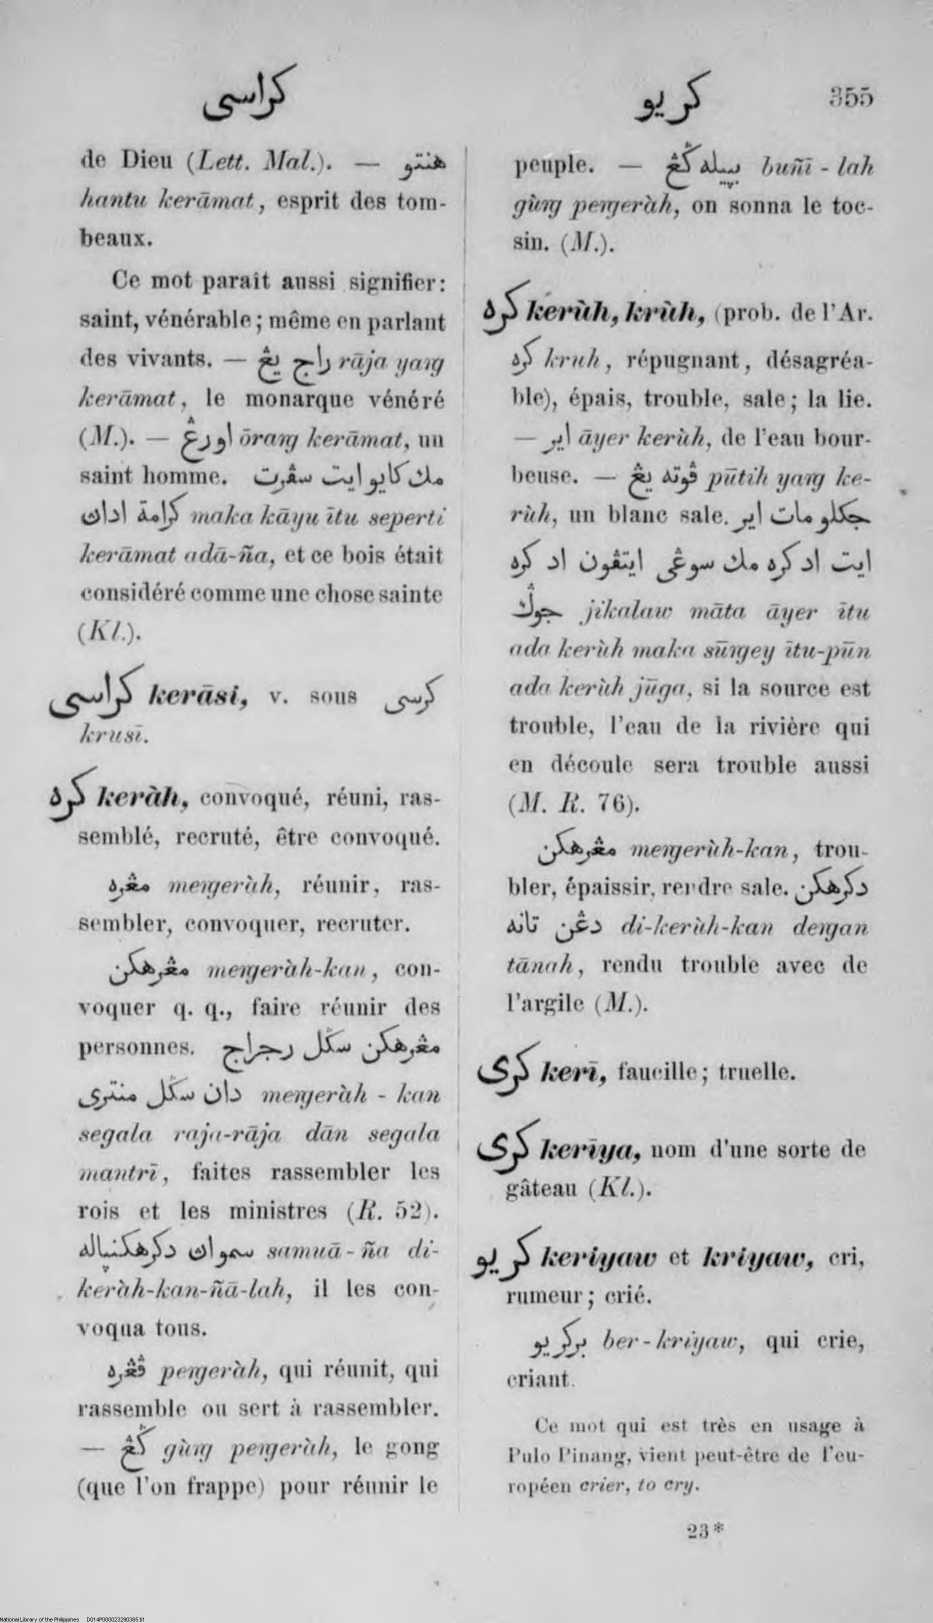 كراسى
كريو
355
de Dieu (Lett. Mal.). — هنتو
hantu kerāmat, esprit des tom-
beaux.
Ce mot paraît aussi signifier:
saint, vénérable; même en parlant
des vivants. — راج يڠ rāja yaŋg
kerāmat, le monarque vénéré
(M.). — اورڠ ōraŋg kerāmat, un
saint homme. مك كايو ايت سڤرت
كرامة اداڽ maka kāyu ītu seperti
kerāmat adā-ña, et ce bois était
considéré comme une chose sainte
(Kl.).
كراسى kerāsi, v. sous كرسى
krusī.
كره keràh, convoqué, réuni, ras-
semblé, recruté, être convoqué.
مڠره meŋgeràh, réunir, ras-
sembler, convoquer, recruter.
مڠرهكن meŋgeràh-kan, con-
voquer q. q., faire réunir des
personnes. مڠرهكن سڬل رجراج
دان سڬل منترى meŋgeràh-kan
segala raja-rāja dān segala
mantrī, faites rassembler les
rois et les ministres (R. 52).
سمواڽ دكرهكنياله samuā-ña di-
keràh-kan-ñā-lah, il les con-
voqua tous.
ڤڠره peŋgeràh, qui réunit, qui
rassemble ou sert à rassembler.
— ڬڠ gùŋg peŋgeràh, le gong
(que l'on frappe) pour réunir le
peuple. — بپيله ڬڠ buñī-lah
gùŋg peŋgeràh, on sonna le toc-
sin. (M.).
كره kerùh, krùh, (prob. de l'Ar.
كره kruh, répugnant, désagréa-
ble), épais, trouble, sale; la lie.
— اير āyer kerùh, de l'eau bour-
beuse. — ڤوته يڠ pūtih yaŋg ke-
rùh, un blanc sale. جكلو مات اير
ايت اد كره مك سوڠى ايتڤون اد كره
جوڬ jikalaw māta āyer ītu
ada kerùh maka sūŋgey ītu-pūn
ada kerùh jūga, si la source est
trouble, l'eau de la rivière qui
en découle sera trouble aussi
(M. R. 76).
مڠرهكن meŋgerùh-kan, trou-
bler, épaissir, rendre sale. دكرهكن
دڠن تانه di-kerùh-kan deŋgan
tānah, rendu trouble avec de
l'argile (M.).
كرى kerī, faucille; truelle.
كرى kerīya, nom d'une sorte de
gâteau (Kl.).
كريو keriyaw et kriyaw, cri,
rumeur; crié.
بركريو ber-kriyaw, qui crie,
criant.
Ce mot qui est très en usage à
Pulo Pinang, vient peut-être de l'eu-
ropéen crier, to cry.
23*
National Library of the Philippines